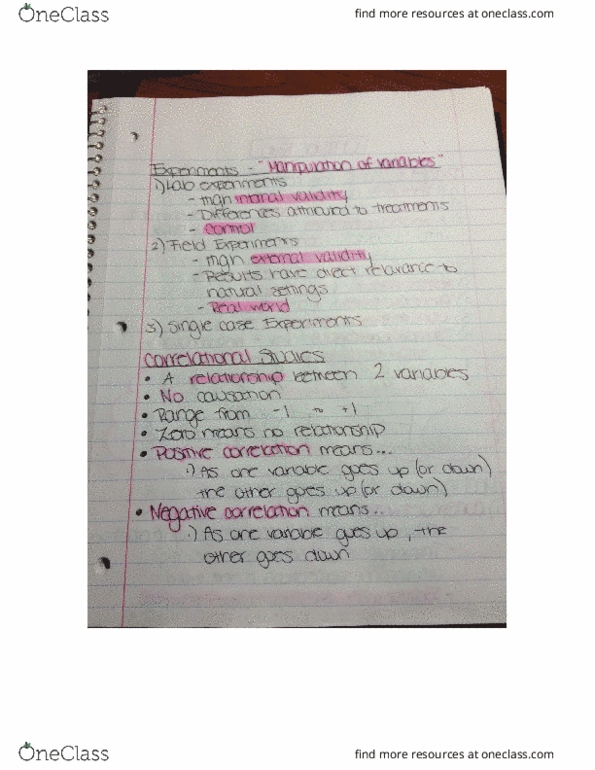 OneClass
find more resources at oneclass.com
Experiments - "Manipulation of variables"
1) Lab experiments
- High internal validity
- Differences attributed to treatments
- Control
2) Field Experiments
- High external validity
- Results have direct relevance to
natural settings
- Real world
3) Single case Experiments
Correlational Studies
• A relationship between 2 variables
• No causation
• Range from -1 to +1
• Zero means no relationship
• Positive correlation means...
1) As one variable goes up (or down)
the other goes up (or down)
• Negative correlation means...
1) As one variable goes up, the
other goes down
OneClass
find more resources at oneclass.com